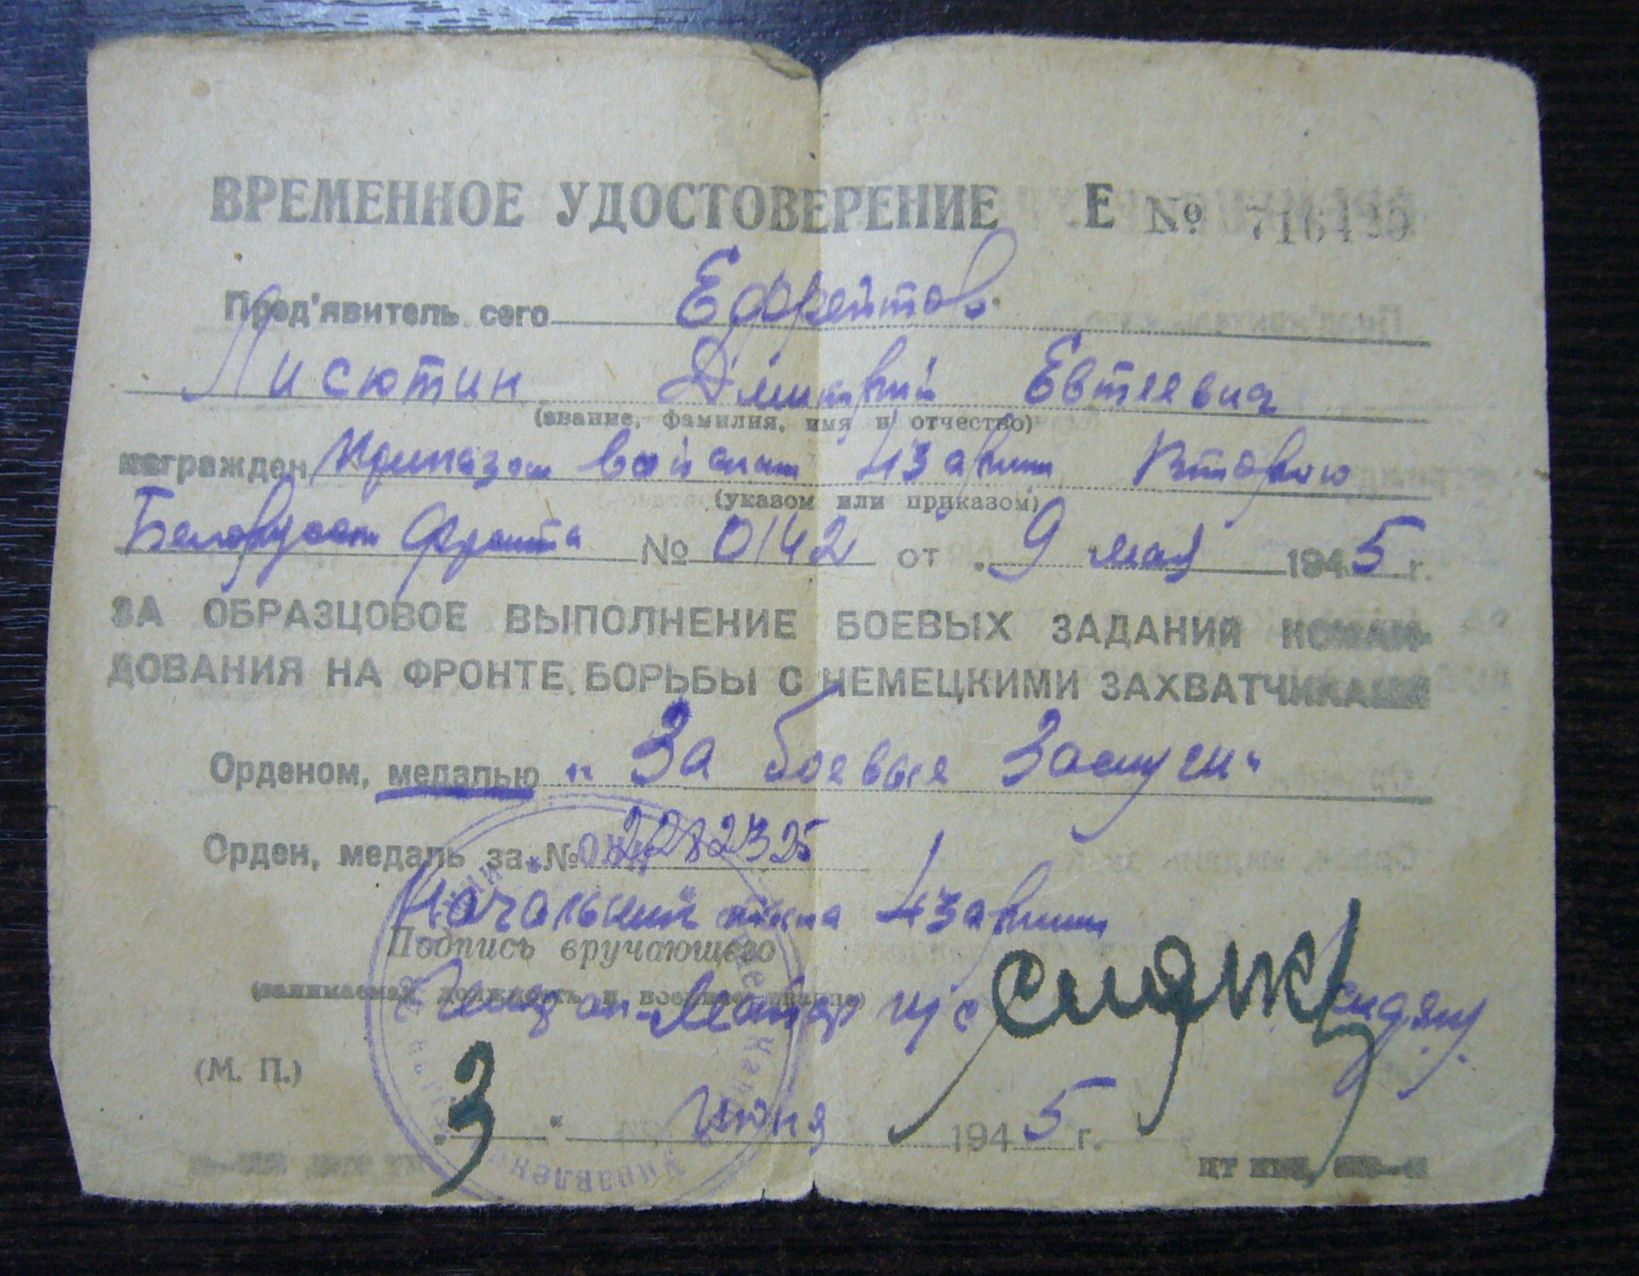 ВРЕМЕННОЕ УДОСТОВЕРЕНИЕ Е №
Пред'явитель сего Ефрейтор
Лисютин Дмитрий Евтеевич
(звание, фамилия, имя и отчество)
награжден Приказом войскам 43 армии Второго
(указом или приказом)
Белорусск фронта № 0142 от 9 мая 1945 г.
ЗА ОБРАЗЦОВОЕ ВЫПОЛНЕНИЕ БОЕВЫХ ЗАДАНИЙ КОМАН-
ДОВАНИЯ НА ФРОНТЕ БОРЬБЫ С НЕМЕЦКИМИ ЗАХВАТЧИКАМИ
Орденом, медалью „За боевые Заслуги"
Орден, медаль за №
Начальник 43 армии
Подпись вручающего
(занимаемая должность и военное звание)
Генерал-Майор и/с
(М. П.)
3 Июня 1945 г.